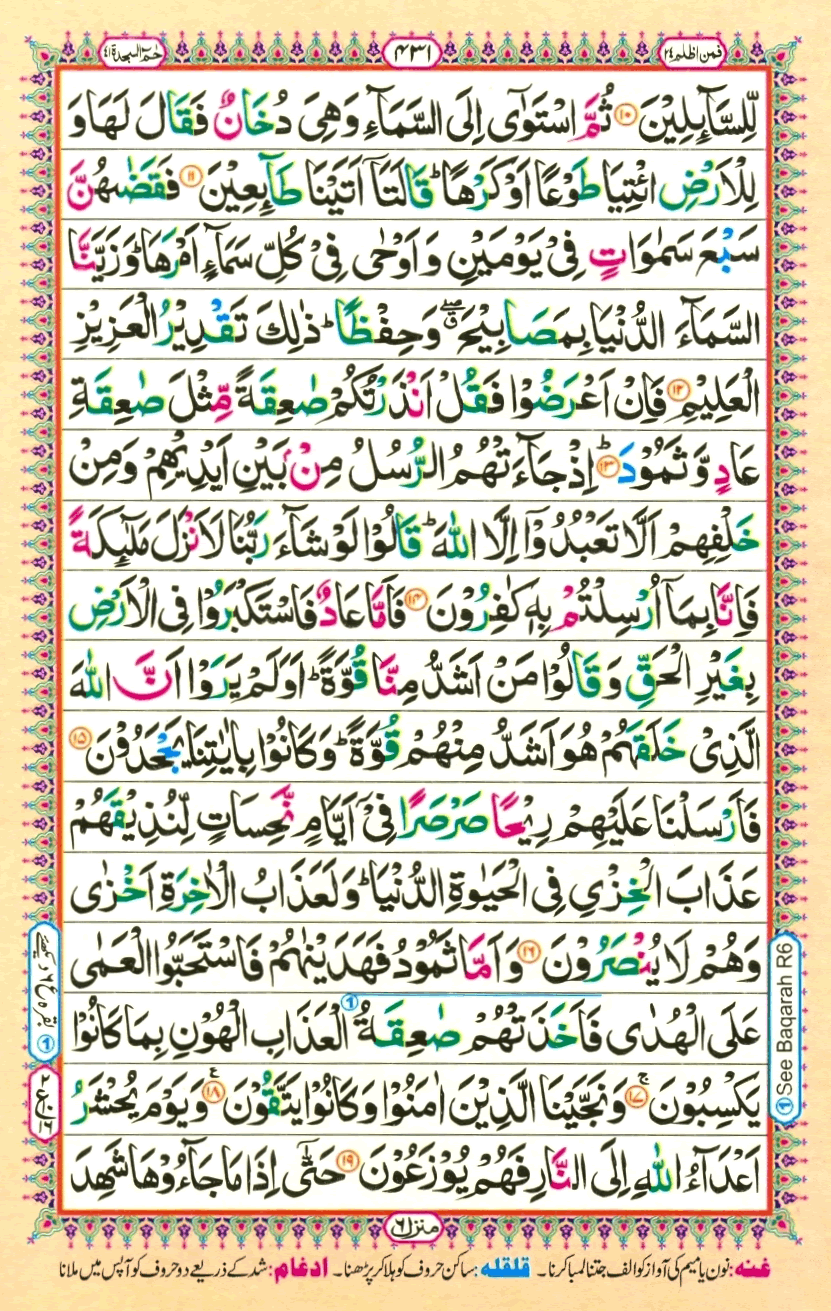 فمن اظلم ٢٤
٤٣١
حٰمٓ السجدة ٤١
لِّلسَّآئِلِيْنَ ۝۱۰ ثُمَّ اسْتَوٰۤى اِلَى السَّمَآءِ وَهِيَ دُخَانٌ فَقَالَ لَهَا وَ
لِلْاَرْضِ ائْتِيَا طَوْعًا اَوْ كَرْهًا ؕ قَالَتَاۤ اَتَيْنَا طَآئِعِيْنَ ۝۱۱ فَقَضٰىهُنَّ
سَبْعَ سَمٰوَاتٍ فِيْ يَوْمَيْنِ وَ اَوْحٰى فِيْ كُلِّ سَمَآءٍ اَمْرَهَا ؕ وَ زَيَّنَّا
السَّمَآءَ الدُّنْيَا بِمَصَابِيْحَ ۖۗ وَحِفْظًا ؕ ذٰلِكَ تَقْدِيْرُ الْعَزِيْزِ
الْعَلِيْمِ ۝۱۲ فَاِنْ اَعْرَضُوْا فَقُلْ اَنْذَرْتُكُمْ صٰعِقَةً مِّثْلَ صٰعِقَةِ
عَادٍ وَّ ثَمُوْدَ ؕ۝۱۳ اِذْ جَآءَتْهُمُ الرُّسُلُ مِنْۢ بَيْنِ اَيْدِيْهِمْ وَمِنْ
خَلْفِهِمْ اَلَّا تَعْبُدُوْۤا اِلَّا اللّٰهَ ؕ قَالُوْا لَوْ شَآءَ رَبُّنَا لَاَنْزَلَ مَلٰٓئِكَةً
فَاِنَّا بِمَاۤ اُرْسِلْتُمْ بِهٖ كٰفِرُوْنَ ۝۱۴ فَاَمَّا عَادٌ فَاسْتَكْبَرُوْا فِى الْاَرْضِ
بِغَيْرِ الْحَقِّ وَ قَالُوْا مَنْ اَشَدُّ مِنَّا قُوَّةً ؕ اَوَلَمْ يَرَوْا اَنَّ اللّٰهَ
الَّذِيْ خَلَقَهُمْ هُوَ اَشَدُّ مِنْهُمْ قُوَّةً ؕ وَكَانُوْا بِاٰيٰتِنَا يَجْحَدُوْنَ ۝۱۵
فَاَرْسَلْنَا عَلَيْهِمْ رِيْحًا صَرْصَرًا فِيْۤ اَيَّامٍ نَّحِسَاتٍ لِّنُذِيْقَهُمْ
عَذَابَ الْخِزْيِ فِى الْحَيٰوةِ الدُّنْيَا ؕ وَلَعَذَابُ الْاٰخِرَةِ اَخْزٰى
وَهُمْ لَا يُنْصَرُوْنَ ۝۱۶ وَ اَمَّا ثَمُوْدُ فَهَدَيْنٰهُمْ فَاسْتَحَبُّوا الْعَمٰى
عَلَى الْهُدٰى فَاَخَذَتْهُمْ صٰعِقَةُ ① الْعَذَابِ الْهُوْنِ بِمَا كَانُوْا
يَكْسِبُوْنَ ۚ۝۱۷ وَنَجَّيْنَا الَّذِيْنَ اٰمَنُوْا وَكَانُوْا يَتَّقُوْنَ ۠۝۱۸ وَيَوْمَ يُحْشَرُ
اَعْدَآءُ اللّٰهِ اِلَى النَّارِ فَهُمْ يُوْزَعُوْنَ ۝۱۹ حَتّٰۤى اِذَا مَا جَآءُوْهَا شَهِدَ
① See Baqarah R6
① بقرہ ع ۶ دیکھئے
منزل ٦
غنہ: نون یا میم کی آواز کو الف جتنا لمبا کرنا۔ قلقلہ: ساکن حروف کو ہلا کر پڑھنا۔ ادغام: شد کے ذریعے دو حروف کو آپس میں ملانا